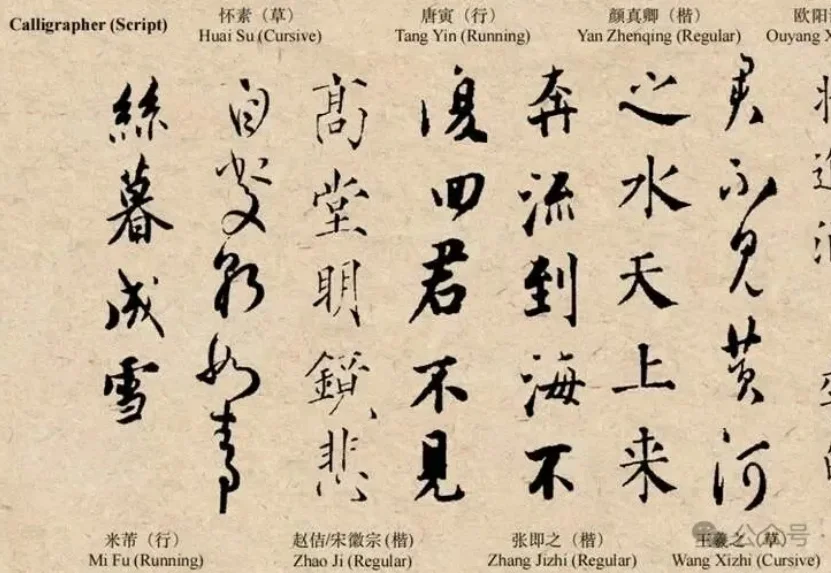 Calligrapher (Script)
怀素（草）
Huai Su (Cursive)
唐寅（行）
Tang Yin (Running)
颜真卿（楷）
Yan Zhenqing (Regular)
欧阳
Ouyang X
君不見黄河
之水天上来
奔流到海不
復回君不見
高堂明鎖悲
白发朝如青
絲暮成雪
米芾（行）
Mi Fu (Running)
赵佶/宋徽宗(楷)
Zhao Ji (Regular)
张即之（楷）
Zhang Jizhi (Regular)
王羲之（草）
Wang Xizhi (Cursive)
公众号